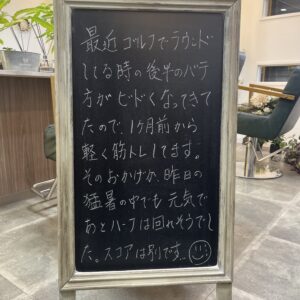 最近ゴルフでラウンド
してる時の後半のバテ
方がヒドくなってきて
たので、1ヶ月前から
軽く筋トレしてます。
そのおかげか、昨日の
猛暑の中でも元気で
あとハーフは回れそうでし
た。スコアは別です…